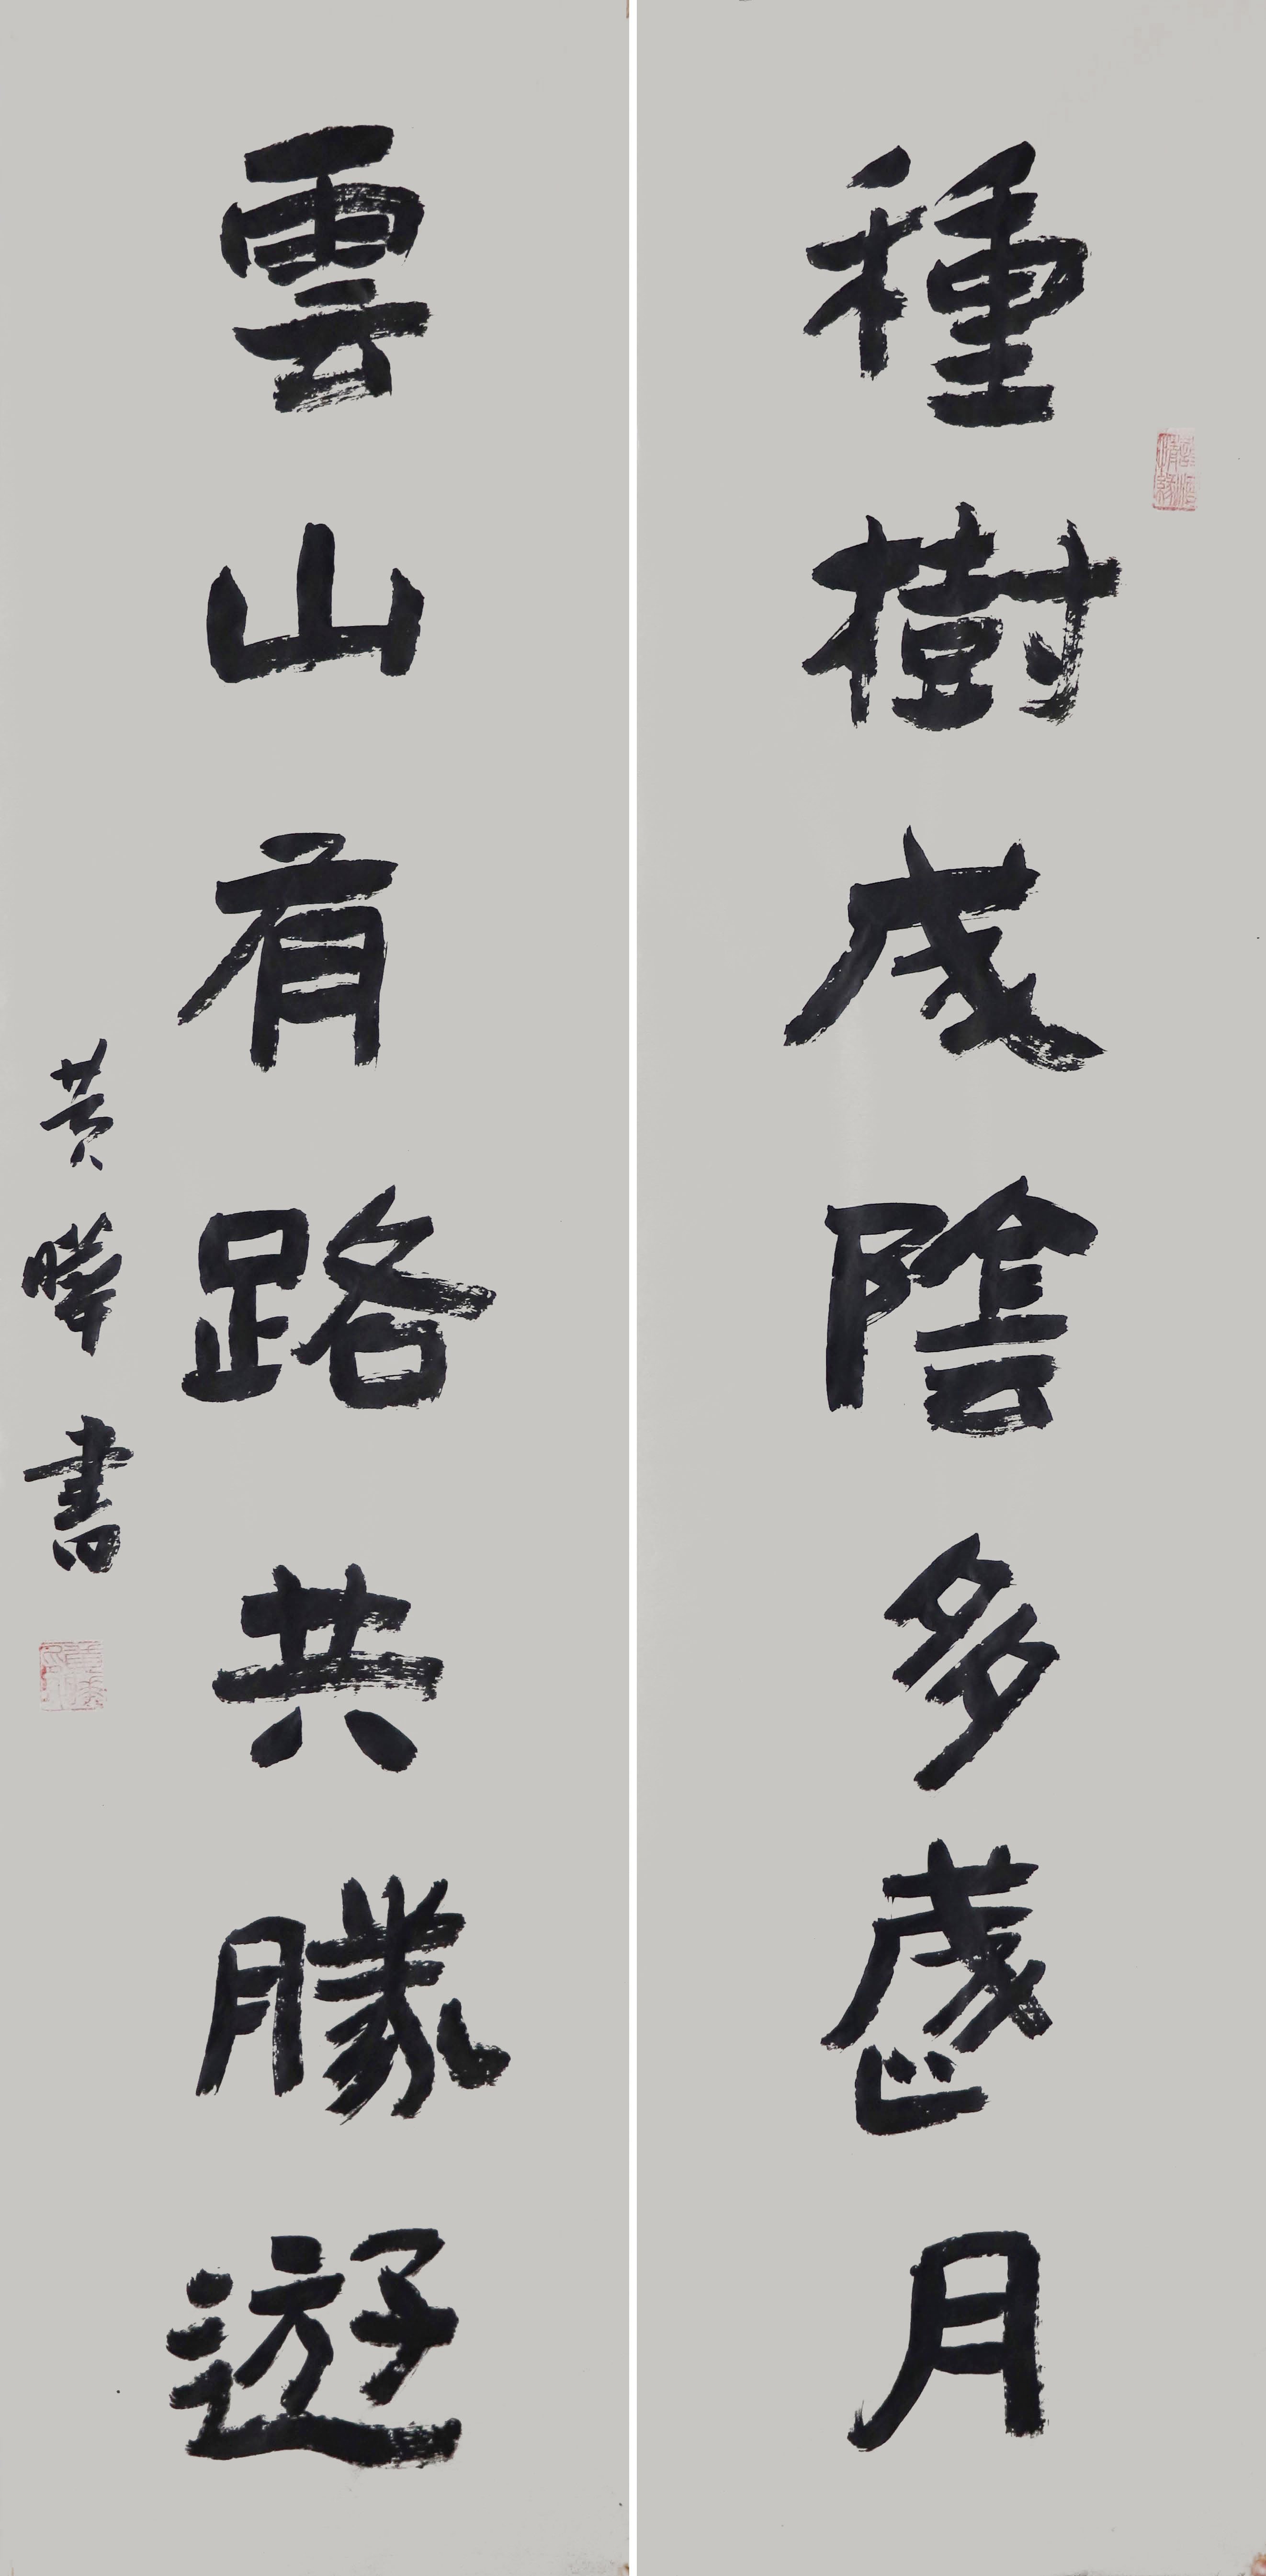 種樹成陰多歲月
雲山有路共勝遊
黄曄書